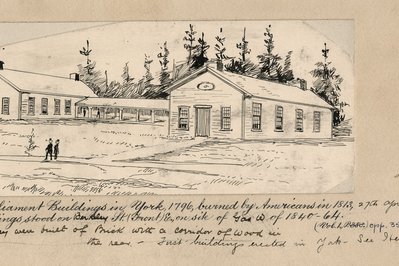 liament Buildings in York, 1796, burned by Americans in 1813, 27th apr
ings stood on Berkeley St (Front) E, on site of Gas W. of 1840-64.
ey were built of Brick with a corridor of Wood in
the rear - First buildings erected in York. See